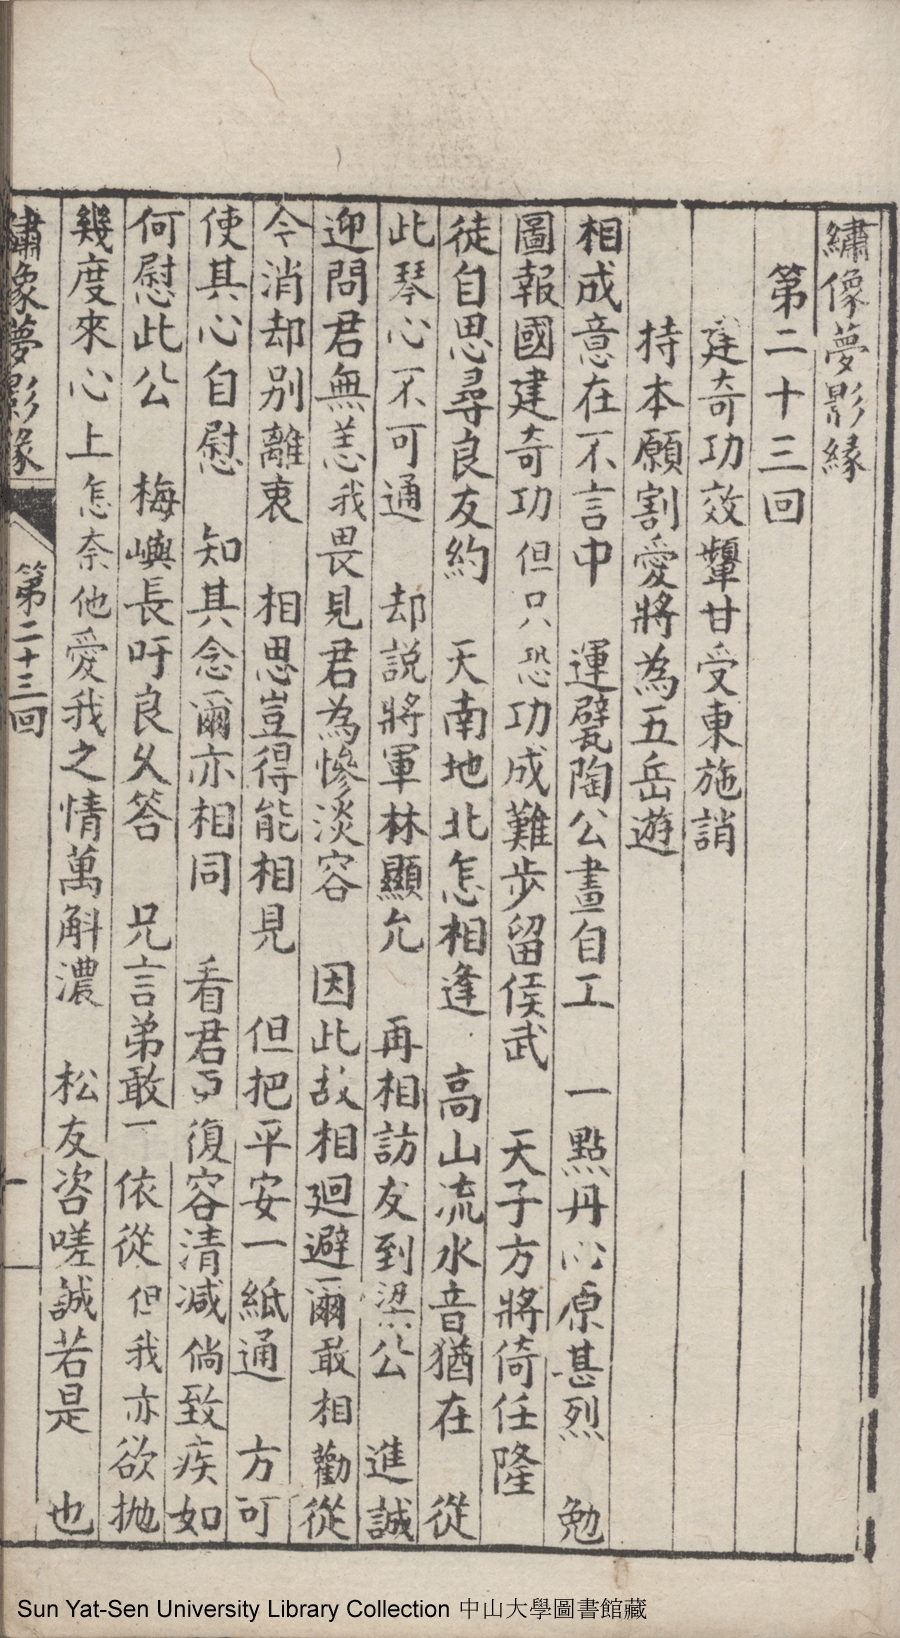 繡像夢影緣
第二十三回
建奇功效顰甘受東施誚
持本願割愛將為五岳遊
相成意在不言中　運甓陶公畫自工　一點丹心原甚烈　勉
圖報國建奇功但只恐功成難步留侯武　天子方將倚任隆
徒自思尋良友約　天南地北怎相逢　高山流水音猶在　從
此琴心不可通　却説將軍林顯允　再相訪友到梁公　進誠
迎問君無恙我畏見君為慘淡容　因此故相廻避爾敢相勸從
今消却別離衷　相思豈得能相見　但把平安一紙通　方可
使其心自慰　知其念爾亦相同　看君復容清減倘致疾如
何慰此公　梅嶼長吁良久答　兄言弟敢一依從但我亦欲拋
幾度來心上怎奈他愛我之情萬斛濃　松友咨嗟誠若是　也
繡像夢影緣　第二十三回　一
Sun Yat-Sen University Library Collection 中山大學圖書館藏